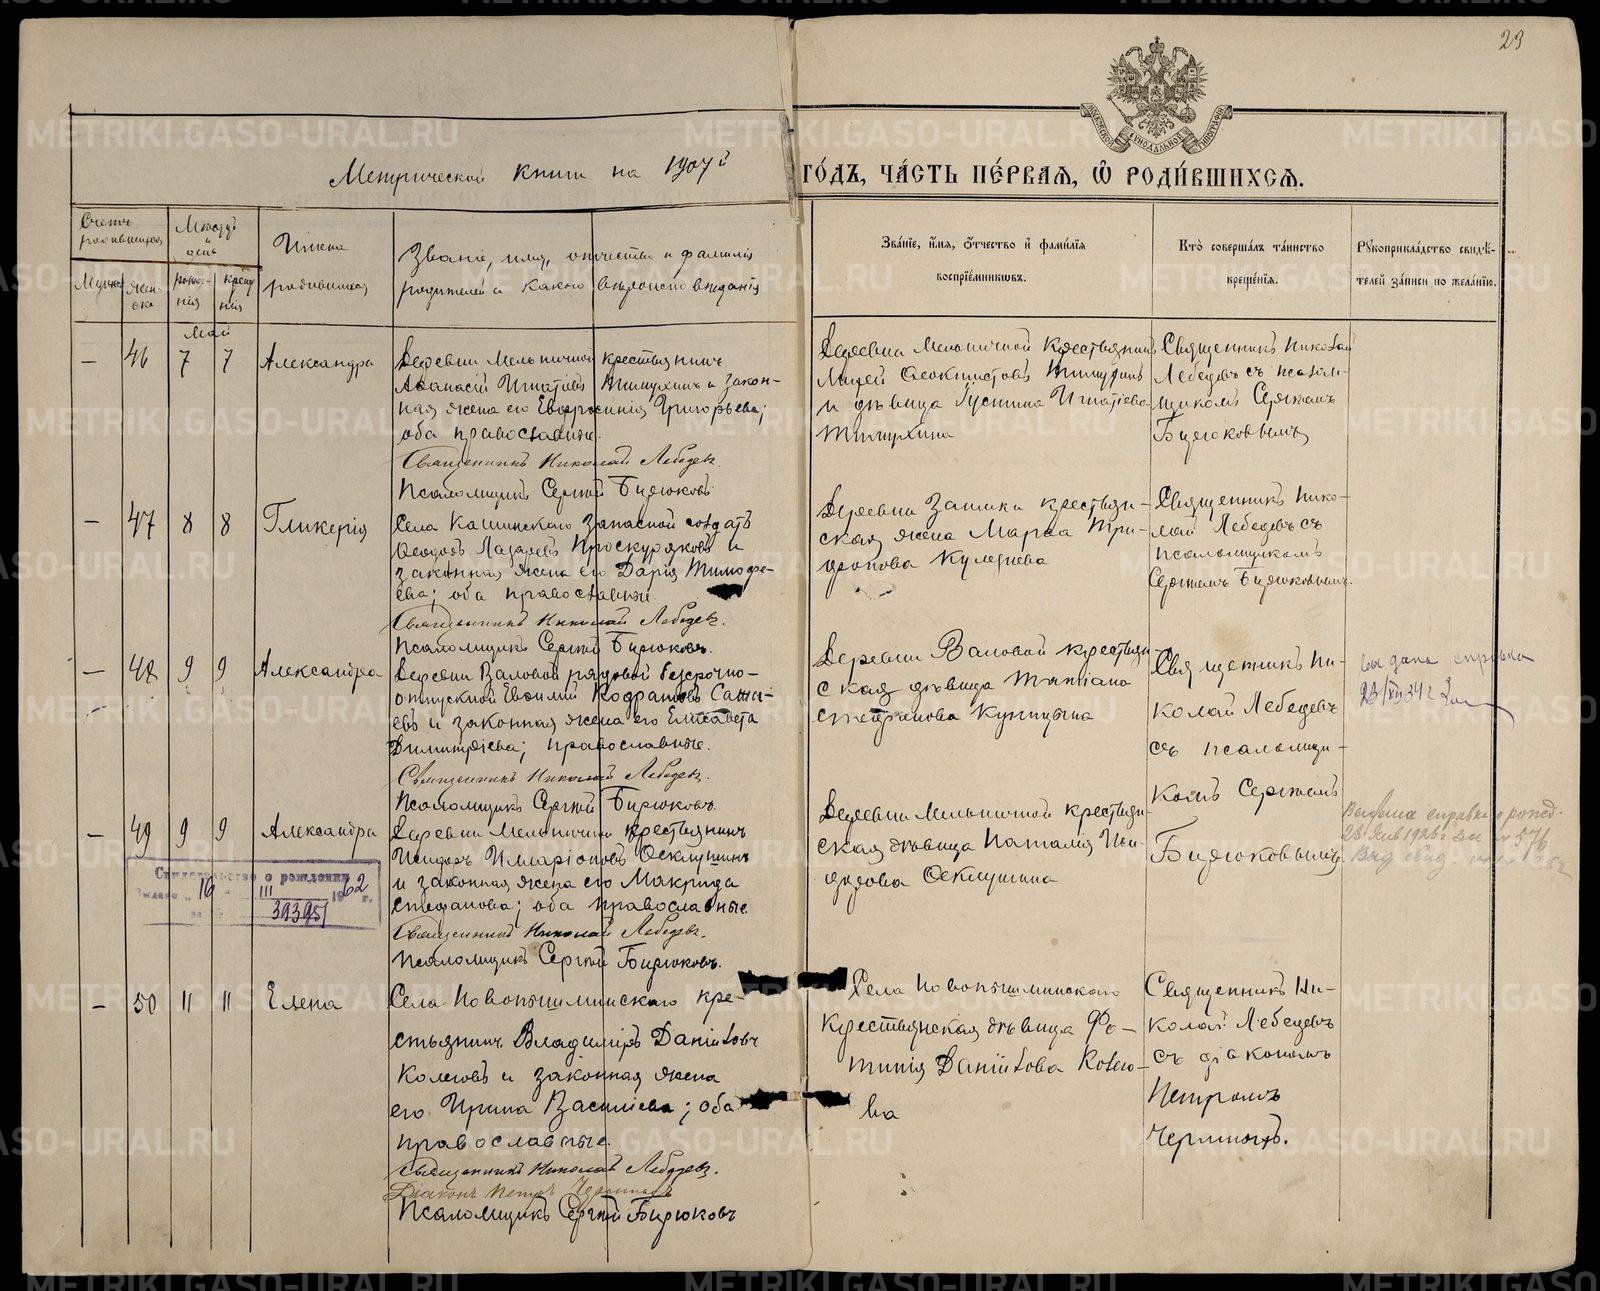 23
Метрической книги на 1907й
го́дъ, ча́сть пе́рвая, ѡ҆ роди́вшихсѧ.
Счетъ родившихся
Мужеска
Женска
Мѣсяцъ и день
рожде-нія
креще-нія
Имена родившихся
Званіе, имя, отчество и фамилія
родителей и какого вѣроисповѣданія
Зва́нїе, и҆́мя, ѻ҆́тчество и҆ фами́лїя
воспрїе́мниковъ.
Кто̀ соверша́лъ та́инство
креще́нїя.
Рꙋкоприкла́дство свидѣ́-
телей за́писи по жела́нїю.
Май
— 46 7 7 Александра
Деревни Мельничной крестьянинъ
Аѳанасій Игнатіевъ Тимухинъ и закон-
ная жена его Евфросинія Григорьева;
оба православные.
Священникъ Николай Лебедевъ.
Псаломщикъ Сергій Бирюковъ
Деревни Мельничной крестьянинъ
Ѳеоктистовъ
и дѣвица Іустина Игнатіева
Тимухина
Священникъ Николай
Лебедевъ съ псалом-
щикомъ Сергіемъ
Бирюковымъ
— 47 8 8 Гликерія
Села Кашинскаго запасной солдатъ
Ѳеодоръ Лазаревъ Проскуряковъ и
законная жена его Дарія Тимоѳе-
ева; оба православные.
Священникъ Николай Лебедевъ.
Псаломщикъ Сергій Бирюковъ.
Деревни Заимки крестьян-
ская жена Марѳа Три-
фонова
Священникъ Нико-
лай Лебедевъ съ
псаломщикомъ
Сергіемъ Бирюковымъ.
— 48 9 9 Александра
Деревни Валовой рядовой безсрочно-
отпускной Евѳимій Кодратовъ
и законная жена его Елисавета
Димитріева; православные.
Священникъ Николай Лебедевъ.
Псаломщикъ Сергій Бирюковъ.
Деревни Валовой крестьян-
ская дѣвица Татіана
Стефанова
Священникъ Ни-
колай Лебедевъ
съ псаломщи-
комъ Сергіемъ
Бирюковымъ
Выдана справка
23/VII 34 г.
— 49 9 9 Александра
Деревни Мельничной крестьянинъ
Исидоръ Илларіоновъ
и законная жена его Макрида
Стефанова; оба православные.
Священникъ Николай Лебедевъ.
Псаломщикъ Сергій Бирюковъ.
Деревни Мельничной крестьян-
ская дѣвица Наталія Иси-
дорова
Выдана справка о рожд.
28 Янв 1926 г за № 576
Свидетельство о рождении
Выдано „16“ III 1962 г.
за № 393951
— 50 11 11 Елена
Села Новопышминскаго кре-
стьянинъ Владиміръ Даніиловъ
и законная жена
его Ирина Василіева; оба
православные.
Священникъ Николай Лебедевъ.
Діаконъ Петръ
Псаломщикъ Сергій Бирюковъ
Села Новопышминскаго
крестьянская дѣвица Фо-
тинія Даніилова
ва
Священникъ Ни-
колай Лебедевъ
съ діакономъ
Петромъ
METRIKI.GASO-URAL.RU